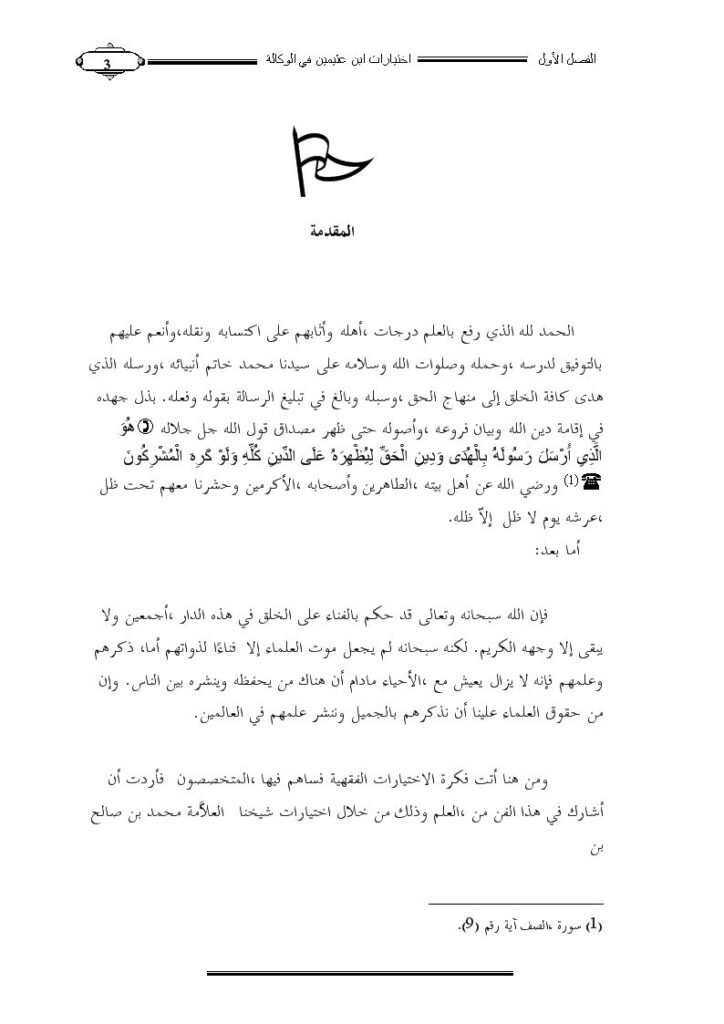 الفصل الأول اختيارات ابن عثيمين في الوكالة 3
المقدمة
الحمد لله الذي رفع بالعلم درجات ،أهله وأثابهم على اكتسابه ونقله،وأنعم عليهم
بالتوفيق لدرسه ،وحمله وصلوات الله وسلامه على سيدنا محمد خاتم أنبيائه ،ورسله الذي
هدى كافة الخلق إلى منهاج الحق ،وسبله وبالغ في تبليغ الرسالة بقوله وفعله. بذل جهده
في إقامة دين الله وبيان فروعه ،وأصوله حتى ظهر مصداق قول الله جل جلاله هُوَ
الَّذِي أَرْسَلَ رَسُولَهُ بِالْهُدَى وَدِينِ الْحَقِّ لِيُظْهِرَهُ عَلَى الدِّينِ كُلِّهِ وَلَوْ كَرِهَ الْمُشْرِكُونَ
☎(1) ورضي الله عن أهل بيته ،الطاهرين وأصحابه ،الأكرمين وحشرنا معهم تحت ظل
،عرشه يوم لا ظل إلاّ ظله.
أما بعد:
فإن الله سبحانه وتعالى قد حكم بالفناء على الخلق في هذه الدار ،أجمعين ولا
يبقى إلا وجهه الكريم. لكنه سبحانه لم يجعل موت العلماء إلا فناءًا لذواتهم أما، ذكرهم
وعلمهم فإنه لا يزال يعيش مع ،الأحياء مادام أن هناك من يحفظه وينشره بين الناس. وإن
من حقوق العلماء علينا أن نذكرهم بالجميل وننشر علمهم في العالمين.
ومن هنا أتت فكرة الاختيارات الفقهية فساهم فيها ،المتخصصون فأردت أن
أشارك في هذا الفن من ،العلم وذلك من خلال اختيارات شيخنا العلاَّمة محمد بن صالح
بن
(1) سورة ،الصف آية رقم (9).